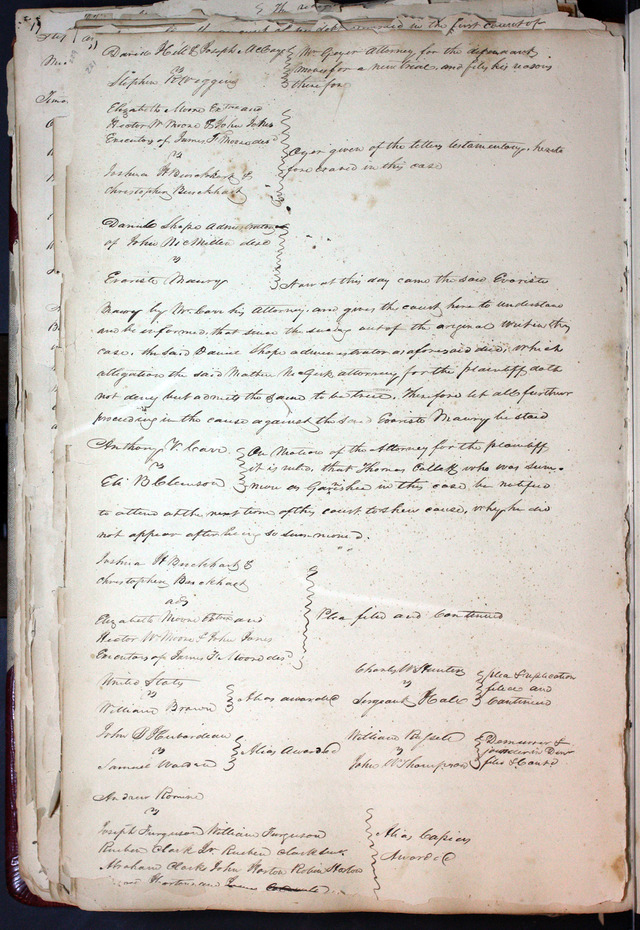 in the first count of
David Hill & Joseph McCoy
vs
Stephen W Wiggins
Mr Geyer Attorney for the defendant
moves for a new trial, and files his reasons
therefor
Elizabeth Moore Extrx and
Hector W Moore & John Jones
Executors of James F Moore decd
vs
Joshua H Burckhart &
Christopher Burckhart
Oyer given of the letters testamentary, hereto
fore craved in this case
Daniel Shope Administrator
of John McMillen decd
vs
Evariste Maury
Now at this day came the said Evariste
Maury by Mr Carr his Attorney, and gives the court here to understand
and be informed, that since the suing out of the original Writ in this
case, the said Daniel Shope administrator as aforesaid died, which
allegation the said Mathew McGirk attorney for the plaintiff doth
not deny but admits the same to be true, Therefore let all further
proceeding in the cause against the said Evariste Maury be staid
Anthony V. Carr
vs
Eli B Clemson
On Motion of the Attorney for the plaintiff
it is ruled, that Thomas who was sum-
mon as Garishee in this case be notified
to attend at the next term of this court to shew cause, why he did
not appear after being so summoned.
Joshua H Burckhart &
Christopher Burckhart
ads
Elizabeth Moore Extrx and
Hector W Moore & John Jones
Executors of James F Moore decd
Plea filed and Continued
United States
vs
William Brown
Alias awarded
Charles W Hunter
vs
Sergeant Hall
plea & replication
filed and
Continued
John S
vs
Samuel
Alias Awarded
William
vs
John W Thompson
Demurrer &
joinder in Dem
filed & Contd
Andrew Romine
vs
Joseph Furguson William Furguson
Reuben Clark Jr. Reuben Clark Senr
Abraham Clarke John Horton Robin Horton
Horton and James
Alias Capias
Awarded